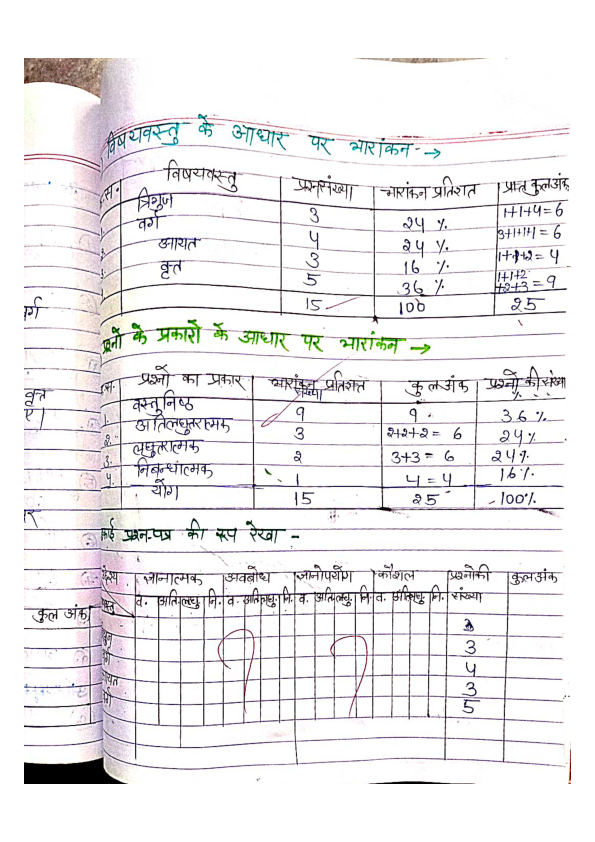 विषयवस्तु के आधार पर भारांकन →
स. विषयवस्तु प्रश्नसंख्या भारांकन प्रतिशत प्राप्त कुल अंक
त्रिभुज 3 24 % 1+1+4=6
वर्ग 4 24 % 3+1+1+1=6
आयत 3 16 % 1+1+2=4
वृत्त 5 36 % 1+1+2+2+3=9
15 100 25
प्रश्नों के प्रकारों के आधार पर भारांकन →
प्रश्नों का प्रकार भारांकन प्रतिशत संख्या कुल अंक प्रश्नों की संख्या %
वस्तुनिष्ठ 9 9 36 %
2. अतिलघुतरात्मक 3 2+2+2=6 24%
3. लघुतरात्मक 2 3+3=6 24%
4. निबन्धात्मक 1 4=4 16%
योग 15 25 100%
प्रश्न-पत्र की रूप रेखा -
ज्ञानात्मक अवबोध ज्ञानोपयोग कौशल प्रश्नोकी संख्या कुल अंक
व. अति. लघु नि. व. अति. लघु. नि. व. अति. लघु. नि. व. अति. लघु. नि.
3
4
3
5
र्ग
वृत्त
कुल अंक